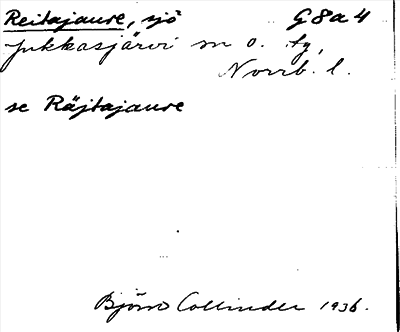 Reitajaure, sjö G8a4
Jukkasjärvi sn o. tg,
Norrb. l.
se Räjtajaure
Björn Collinder 1936.